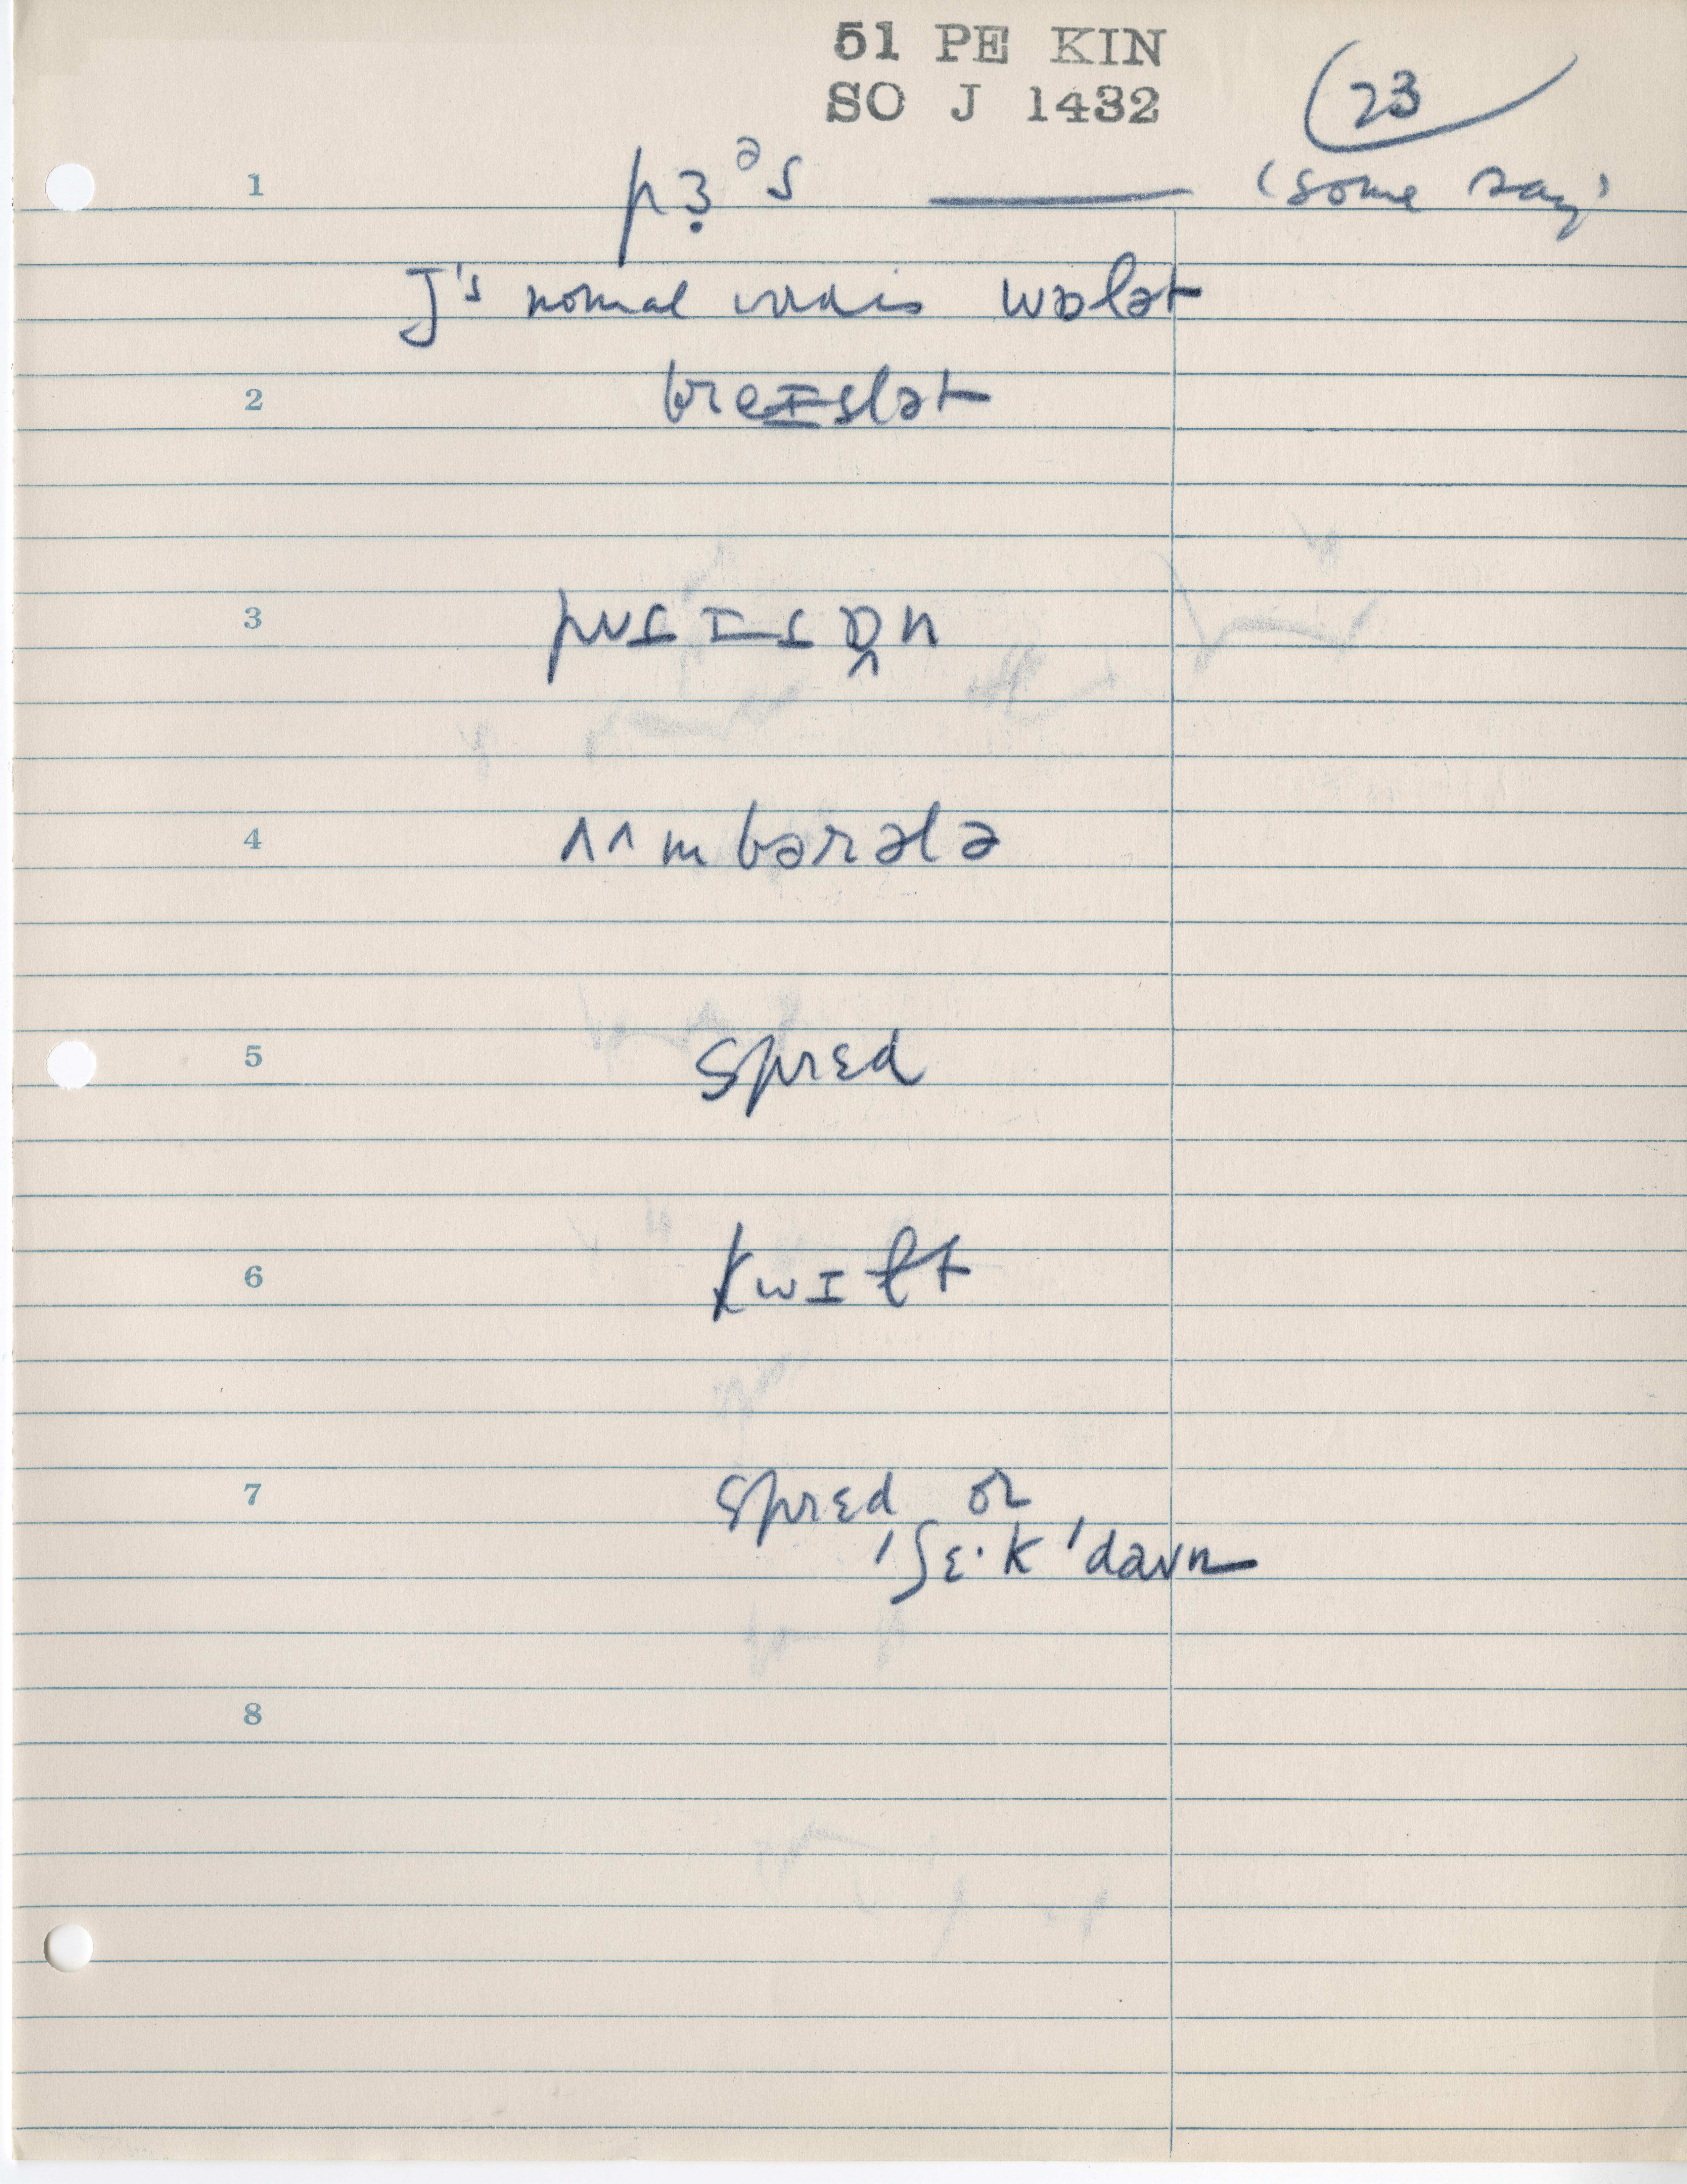 51 PE KIN
SO J 1432
23
1 pɜ̣ᵊs ——— (some say)
J's normal wɒlət
2 breɪslət
3
4 ʌʌmbərələ
5 sprɛd
6 kwɪlt
7 sprɛd or
'ʃɛ·k 'daʊn
8